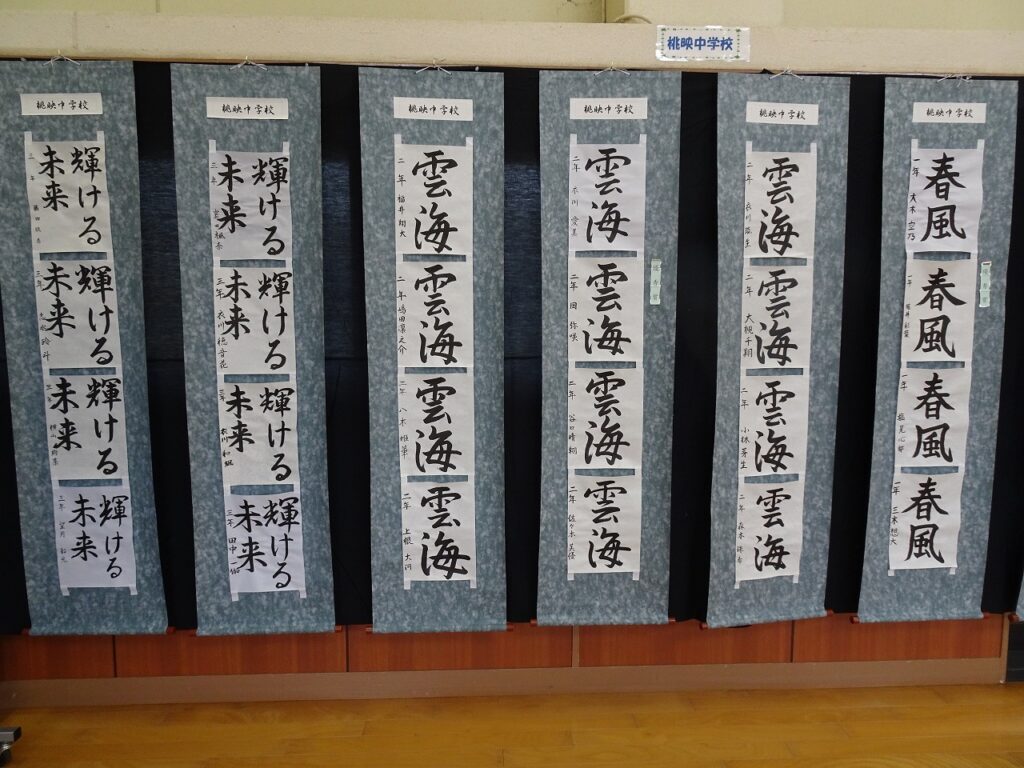 桃映中学校
桃映中学校
輝ける
未来
三年
輝ける
未来
三年
輝ける
未来
三年
輝ける
未来
三年 望月
桃映中学校
輝ける
未来
三年
輝ける
未来
三年 衣川穂音花
輝ける
未来
三年 衣川
輝ける
未来
三年 田中
桃映中学校
雲海
二年 福井翔大
雲海
二年 嶋田凛之介
雲海
二年 八木
雲海
二年 上根大河
桃映中学校
雲海
二年 衣川愛美
雲海
二年 田弥咲
雲海
二年 谷口晴翔
雲海
二年 佐々木美優
桃映中学校
雲海
二年 衣川
雲海
二年 大槻千翔
雲海
二年 小林芽生
雲海
二年 森本
桃映中学校
春風
一年 大木空乃
春風
一年
春風
一年 塩見心都
春風
一年 三木想大